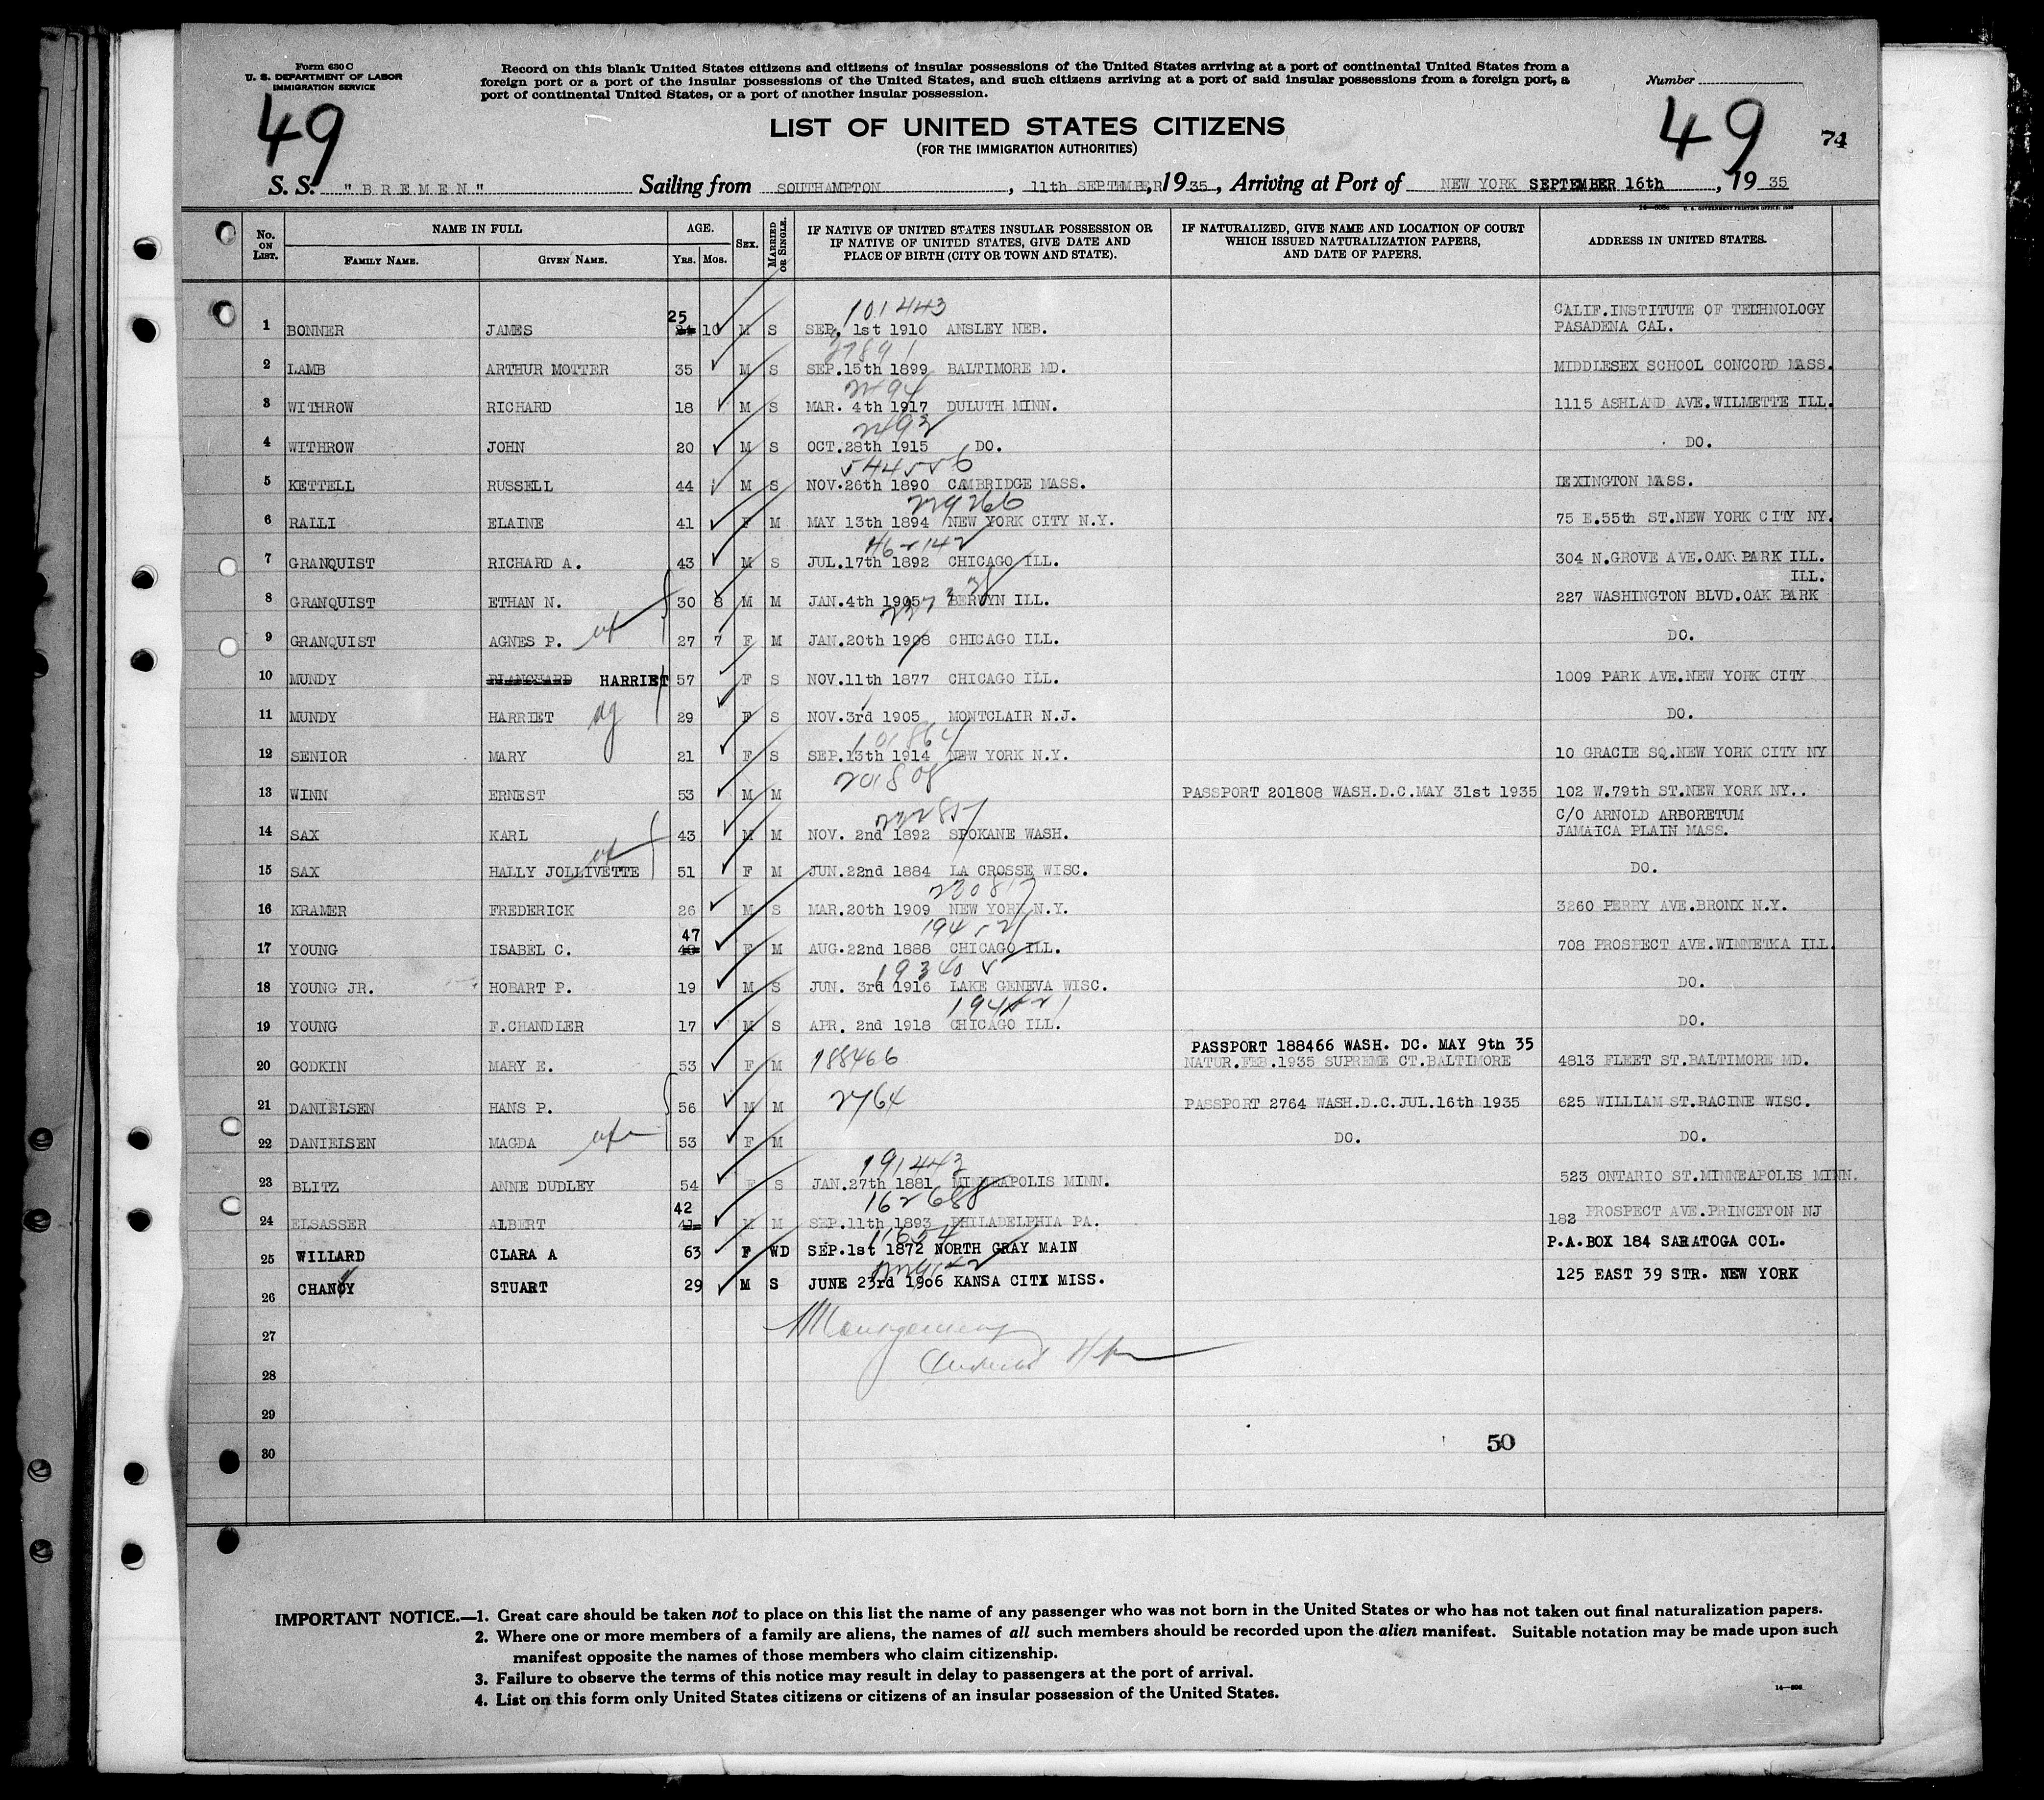 Form 630 C
U. S. DEPARTMENT OF LABOR
IMMIGRATION SERVICE
Record on this blank United States citizens and citizens of insular possessions of the United States arriving at a port of continental United States from a
foreign port or a port of the insular possessions of the United States, and such citizens arriving at a port of said insular possessions from a foreign port, a
port of continental United States, or a port of another insular possession.
Number
49
49
74
LIST OF UNITED STATES CITIZENS
(FOR THE IMMIGRATION AUTHORITIES)
S. S. "BREMEN" Sailing from SOUTHAMPTON, 11th SEPTEMBER, 1935, Arriving at Port of NEW YORK SEPTEMBER 16th, 1935
No. ON LIST. NAME IN FULL FAMILY NAME. GIVEN NAME. AGE. Yrs. Mos. SEX. MARRIED OR SINGLE. IF NATIVE OF UNITED STATES INSULAR POSSESSION OR IF NATIVE OF UNITED STATES, GIVE DATE AND PLACE OF BIRTH (CITY OR TOWN AND STATE). IF NATURALIZED, GIVE NAME AND LOCATION OF COURT WHICH ISSUED NATURALIZATION PAPERS, AND DATE OF PAPERS. ADDRESS IN UNITED STATES.
25 101443 CALIF.INSTITUTE OF TECHNOLOGY
1 BONNER JAMES 24 10 M S SEP. 1st 1910 ANSLEY NEB. PASADENA CAL.
2 LAMB ARTHUR MOTTER 35 M S SEP.15th 1899 BALTIMORE MD. MIDDLESEX SCHOOL CONCORD MASS.
2494
3 WITHROW RICHARD 18 M S MAR. 4th 1917 DULUTH MINN. 1115 ASHLAND AVE.WILMETTE ILL.
2493
4 WITHROW JOHN 20 M S OCT.28th 1915 DO. DO.
544556
5 KETTELL RUSSELL 44 M S NOV.26th 1890 CAMBRIDGE MASS. LEXINGTON MASS.
229266
6 RALLI ELAINE 41 F M MAY 13th 1894 NEW YORK CITY N.Y. 75 E.55th ST.NEW YORK CITY NY.
462142
7 GRANQUIST RICHARD A. 43 M S JUL.17th 1892 CHICAGO ILL. 304 N.GROVE AVE.OAK PARK ILL.
ILL.
8 GRANQUIST ETHAN N. 30 8 M M JAN.4th 1905 BERWYN ILL. 227 WASHINGTON BLVD.OAK PARK
9 GRANQUIST AGNES P. 27 7 F M JAN.20th 1908 CHICAGO ILL. DO.
10 MUNDY BLANCHARD HARRIET 57 F S NOV.11th 1877 CHICAGO ILL. 1009 PARK AVE.NEW YORK CITY
11 MUNDY HARRIET 29 F S NOV.3rd 1905 MONTCLAIR N.J. DO.
12 SENIOR MARY 21 F S SEP.13th 1914 NEW YORK N.Y. 10 GRACIE SQ.NEW YORK CITY NY
201808
13 WINN ERNEST 53 M M PASSPORT 201808 WASH.D.C.MAY 31st 1935 102 W.79th ST.NEW YORK NY..
C/O ARNOLD ARBORETUM
14 SAX KARL 43 M M NOV. 2nd 1892 SPOKANE WASH. JAMAICA PLAIN MASS.
15 SAX HALLY JOLLIVETTE 51 F M JUN.22nd 1884 LA CROSSE WISC. DO.
230817
16 KRAMER FREDERICK 26 M S MAR.20th 1909 NEW YORK N.Y. 3260 PERRY AVE.BRONX N.Y.
47
17 YOUNG ISABEL C. F M AUG.22nd 1888 CHICAGO ILL. 708 PROSPECT AVE.WINNETKA ILL.
18 YOUNG JR. HOBART P. 19 M S JUN. 3rd 1916 LAKE GENEVA WISC. DO.
19 YOUNG F.CHANDLER 17 M S APR. 2nd 1918 CHICAGO ILL. DO.
PASSPORT 188466 WASH. DC. MAY 9th 35
20 GODKIN MARY E. 53 F M 188466 NATUR.FEB.1935 SUPREME CT.BALTIMORE 4813 FLEET ST.BALTIMORE MD.
21 DANIELSEN HANS P. 56 M M 2764 PASSPORT 2764 WASH.D.C.JUL.16th 1935 625 WILLIAM ST.RACINE WISC.
22 DANIELSEN MAGDA 53 F M DO. DO.
191443
23 BLITZ ANNE DUDLEY 54 F S JAN.27th 1881 MINNEAPOLIS MINN. 523 ONTARIO ST.MINNEAPOLIS MINN.
42 162688
24 ELSASSER ALBERT 41 M M SEP.11th 1893 PHILADELPHIA PA. 182 PROSPECT AVE.PRINCETON NJ
11654
25 WILLARD CLARA A 63 F WD SEP.1st 1872 NORTH GRAY MAIN P.A.BOX 184 SARATOGA COL.
26 CHANEY STUART 29 M S JUNE 23rd 1906 KANSA CITY MISS. 125 EAST 39 STR. NEW YORK
27
28
29
30
50
IMPORTANT NOTICE.—1. Great care should be taken not to place on this list the name of any passenger who was not born in the United States or who has not taken out final naturalization papers.
2. Where one or more members of a family are aliens, the names of all such members should be recorded upon the alien manifest. Suitable notation may be made upon such
manifest opposite the names of those members who claim citizenship.
3. Failure to observe the terms of this notice may result in delay to passengers at the port of arrival.
4. List on this form only United States citizens or citizens of an insular possession of the United States.